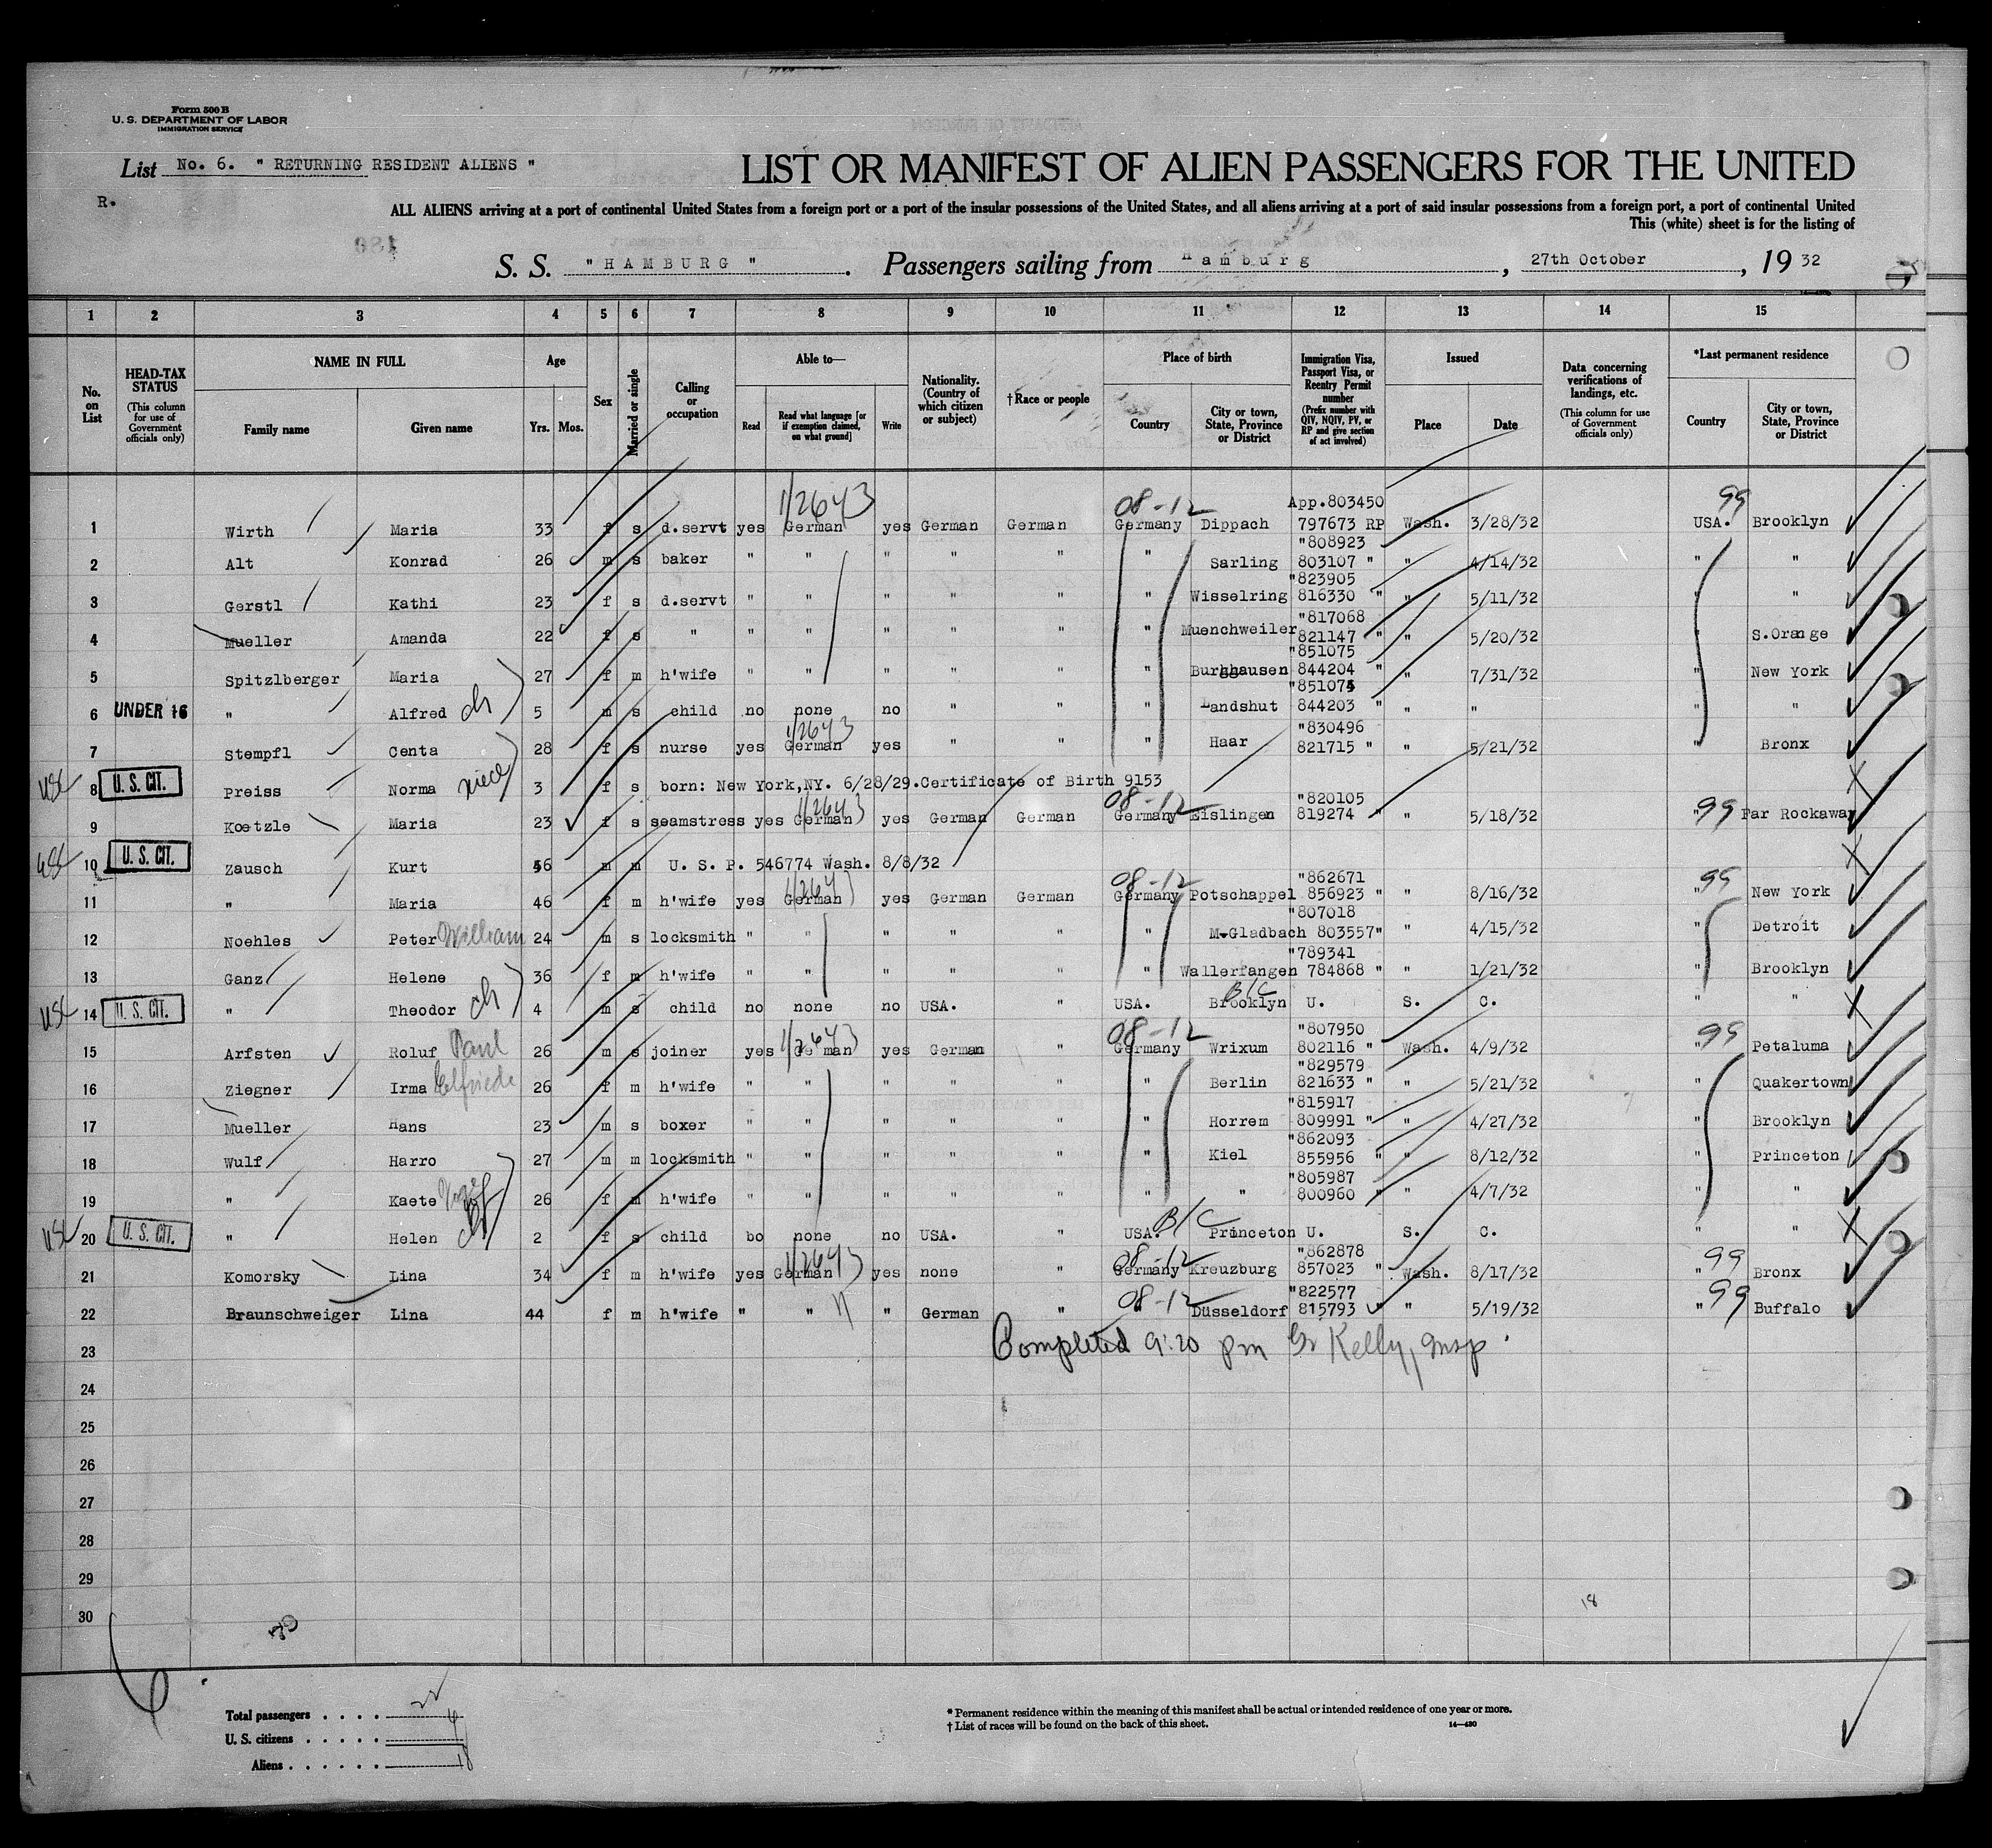 Form 500 B
U. S. DEPARTMENT OF LABOR
IMMIGRATION SERVICE
List No. 6. " RETURNING RESIDENT ALIENS "
R.
LIST OR MANIFEST OF ALIEN PASSENGERS FOR THE UNITED
ALL ALIENS arriving at a port of continental United States from a foreign port or a port of the insular possessions of the United States, and all aliens arriving at a port of said insular possessions from a foreign port, a port of continental United
This (white) sheet is for the listing of
S. S. " HAMBURG " . Passengers sailing from Hamburg , 27th October , 19 32
1 2 3 4 5 6 7 8 9 10 11 12 13 14 15
No. on List
HEAD-TAX STATUS (This column for use of Government officials only)
NAME IN FULL Family name Given name
Age Yrs. Mos.
Sex
Married or single
Calling or occupation
Able to— Read Read what language [or if exemption claimed, on what ground] Write
Nationality. (Country of which citizen or subject)
†Race or people
Place of birth Country City or town, State, Province or District
Immigration Visa, Passport Visa, or Reentry Permit number (Prefix number with QIV, NQIV, PV, or RP and give section of act involved)
Issued Place Date
Data concerning verifications of landings, etc. (This column for use of Government officials only)
*Last permanent residence Country City or town, State, Province or District
1/2643 08-12 App.803450 99
1 Wirth Maria 33 f s d.servt yes German yes German German Germany Dippach 797673 RP Wash. 3/28/32 USA. Brooklyn
"808923
2 Alt Konrad 26 m s baker " " " " " " Sarling 803107 " " 4/14/32 " "
"823905
3 Gerstl Kathi 23 f s d.servt " " " " " " Wisselring 816330 " " 5/11/32 " "
"817068
4 Mueller Amanda 22 f s " " " " " " " Muenchweiler 821147 " " 5/20/32 " S.Orange
"851075
5 Spitzlberger Maria 27 f m h'wife " " " " " " Burghausen 844204 " " 7/31/32 " New York
"851074
6 UNDER 16 " Alfred ch 5 m s child no none no " " " Landshut 844203 " " " " "
1/2643 "830496
7 Stempfl Centa 28 f s nurse yes German yes " " " Haar 821715 " " 5/21/32 " Bronx
USC 8 U. S. CIT. Preiss Norma niece 3 f s born: New York,NY. 6/28/29.Certificate of Birth 9153
1/2643 08-12 "820105
9 Koetzle Maria 23 f s seamstress yes German yes German German Germany Eislingen 819274 " " 5/18/32 " 99 Far Rockaway
USC 10 U. S. CIT. Zausch Kurt 56 m m U. S. P. 546774 Wash. 8/8/32
1/2643 08-12 "862671 99
11 " Maria 46 f m h'wife yes German yes German German Germany Potschappel 856923 " " 8/16/32 " New York
"807018
12 Noehles Peter William 24 m s locksmith " " " " " " M-Gladbach 803557" " 4/15/32 " Detroit
"789341
13 Ganz Helene 36 f m h'wife " " " " " " Wallerfangen 784868 " " 1/21/32 " Brooklyn
B/C
USC 14 U. S. CIT. " Theodor ch 4 m s child no none no USA. " USA. Brooklyn U. S. C. " "
1/2643 08-12 "807950 99
15 Arfsten Roluf Paul 26 m s joiner yes German yes German " Germany Wrixum 802116 " Wash. 4/9/32 " Petaluma
"829579
16 Ziegner Irma Elfriede 26 f m h'wife " " " " " " Berlin 821633 " " 5/21/32 " Quakertown
"815917
17 Mueller Hans 23 m s boxer " " " " " " Horrem 809991 " " 4/27/32 " Brooklyn
"862093
18 Wulf Harro 27 m m locksmith " " " " " " Kiel 855956 " " 8/12/32 " Princeton
"805987
19 " Kaete 26 f m h'wife " " " " " " " 800960 " " 4/7/32 " "
B/C
USC 20 U. S. CIT. " Helen ch 2 f s child bo none no USA. " USA. Princeton U. S. C. " "
1/2643 08-12 "862878 99
21 Komorsky Lina 34 f m h'wife yes German yes none " Germany Kreuzburg 857023 " Wash. 8/17/32 " Bronx
08-12 "822577 99
22 Braunschweiger Lina 44 f m h'wife " " " German " Düsseldorf 815793 " " 5/19/32 " Buffalo
23 Completed 9:20 pm Kelly, Insp.
24
25
26
27
28
29
30
18
Total passengers . . . . 22
U. S. citizens . . . . . 4
Aliens . . . . . . 18
* Permanent residence within the meaning of this manifest shall be actual or intended residence of one year or more.
† List of races will be found on the back of this sheet. 14—430